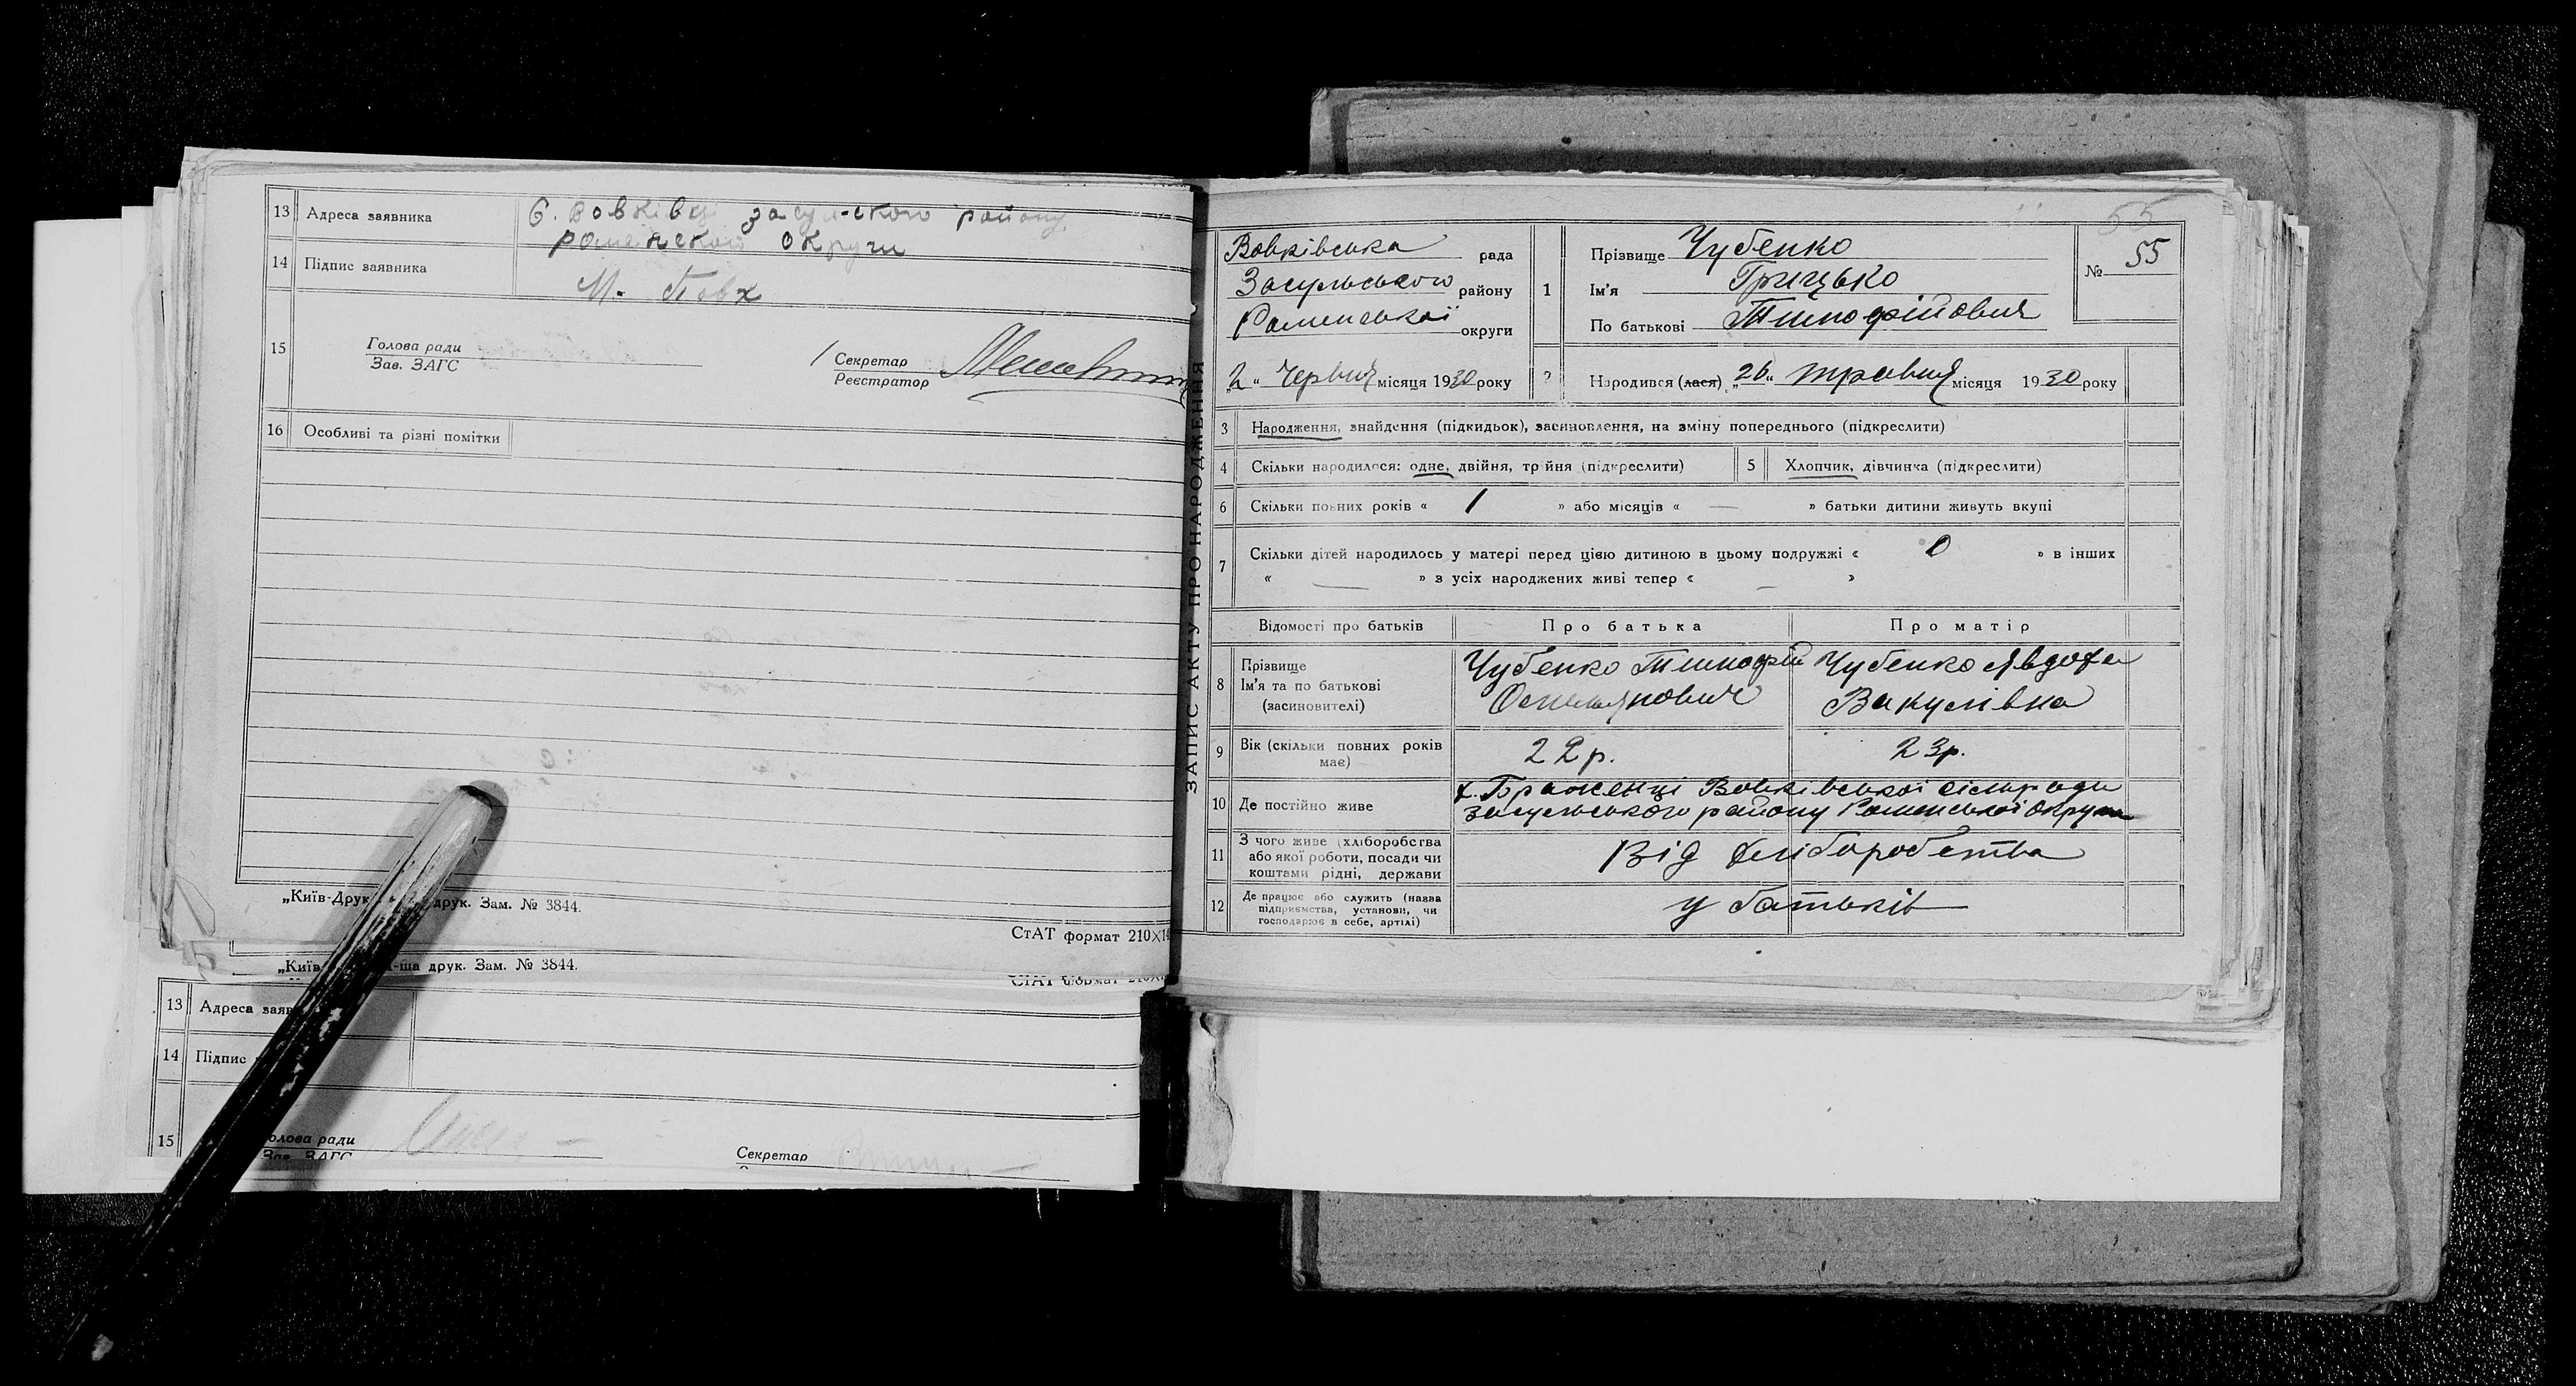 13 Адреса заявника С. Вовківці засульського району
роменської округи
14 Підпис заявника М. Повх
15 Голова ради
Зав. ЗАГС
Секретар
Реєстратор
16 Особливі та різні помітки
„Київ-Друк друк. Зам. № 3844.
СтАТ формат 210×14
„Київ -ша друк. Зам. № 3844.
СтАТ формат 210×
13 Адреса заяв
14 Підпис
15 олова ради
Зав. ЗАГС
Секретар
ЗАПИС АКТУ ПРО НАРОДЖЕННЯ
55
Вовківська рада
Засульського району
Роменської округи
„2“ Червня місяця 1930 року
1 Прізвище Чубенко
Ім'я Грицько
По батькові Тимофійович
№ 55
2 Народився (лася) „26“ травня місяця 1930 року
3 Народження, знайдення (підкидьок), засиновлення, на зміну попереднього (підкреслити)
4 Скільки народилося: одне, двійня, трійня (підкреслити) 5 Хлопчик, дівчинка (підкреслити)
6 Скільки повних років « 1 » або місяців « — » батьки дитини живуть вкупі
7 Скільки дітей народилось у матері перед цією дитиною в цьому подружжі « 0 » в інших
« — » з усіх народжених живі тепер « — »
Відомості про батьків Про батька Про матір
8 Прізвище
Ім'я та по батькові
(засиновителі)
Чубенко Тимофій
Чубенко Явдоха
Вакулівна
9 Вік (скільки повних років
має)
22 р. 23 р.
10 Де постійно живе х. Браженці Вовківської сільради
засульського району Роменської округи
11 З чого живе (хліборобства
або якої роботи, посади чи
коштами рідні, держави
Від хліборобства
12 Де працює або служить (назва
підприємства, установи, чи
господарює в себе, артілі)
у батьків